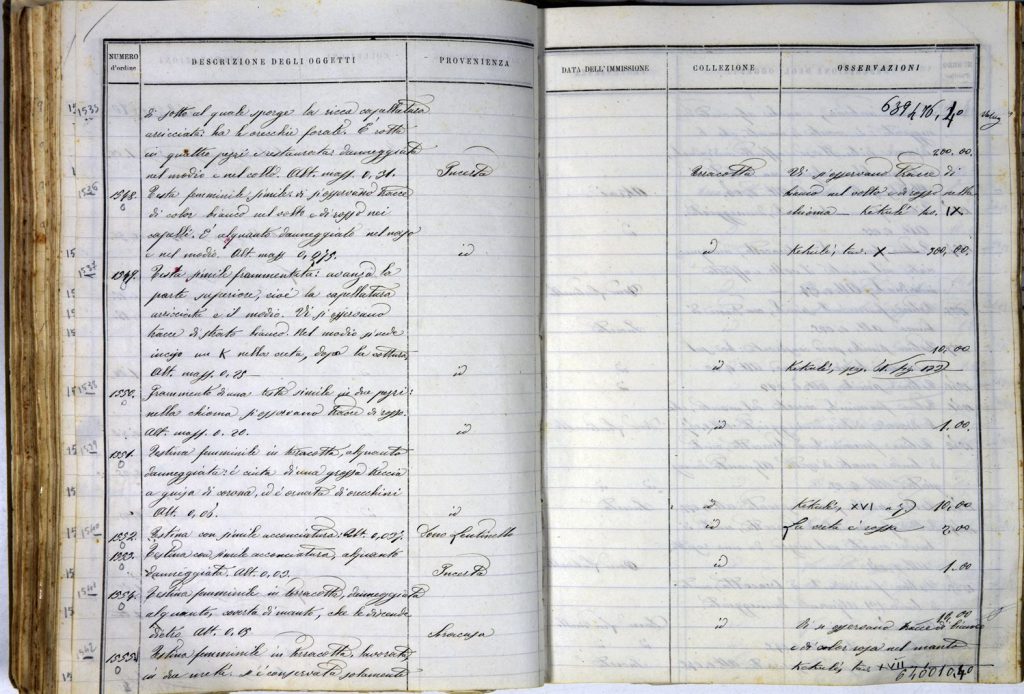 NUMERO
d'ordine
DESCRIZIONE DEGLI OGGETTI
PROVENIENZA
di sotto al quale sporge la ricca capellatura
arricciata: ha le orecchie forate. È rotta
in quattro pezzi e restaurata: danneggiata
nel modio e nel collo. Alt. mass. 0,31.
Incerta
1548.
Testa femminile simile: vi si osservano tracce
di color bianco nel collo e di rosso nei
capelli. È alquanto danneggiata nel naso
e nel modio. Alt. mass. 0,275.
id
1549.
Testa simile frammentata: avanza la
parte superiore, cioè la capellatura
arricciata e il modio. Vi si osservano
tracce di strato bianco. Nel modio si vede
inciso un K nella creta, dopo la cottura.
Alt. mass. 0,25
id
1550.
Frammento di una testa simile in due pezzi:
nella chioma si osservano tracce di rosso.
Alt. mass. 0.20.
id
1551.
Testina femminile in terracotta, alquanto
danneggiata: è cinta di una grossa treccia
a guisa di corona, ed è ornata di orecchini
Alt. 0,05.
id
1552.
Testina con simile acconciatura. Alt. 0,037.
Dono
1553.
Testina con simile acconciatura, alquanto
danneggiata. Alt. 0,03.
Incerta
1554.
Testina femminile in terracotta, danneggiata
alquanto, coverta di manto, che le discende
dietro. Alt. 0,05
Siracusa
1555.
Testina femminile in terracotta, lavorata
in due metà: si è conservata solamente
DATA DELL'IMMISSIONE
COLLEZIONE
OSSERVAZIONI
200.00.
Terracotta
Vi si osservano tracce di
bianco nel collo e di rosso nella
chioma — Kekulé tav. IX
id
Kekulé, tav. X — 300,00.
10,00
id
Kekulé, pag.
id
1.00.
id
Kekulé, XVI
10,00
id
La creta è rossa
2,00
id
1.00
10.00
id
Vi si osservano tracce di bianco
e di color rosa nel manto
Kekulé, tav. XVII